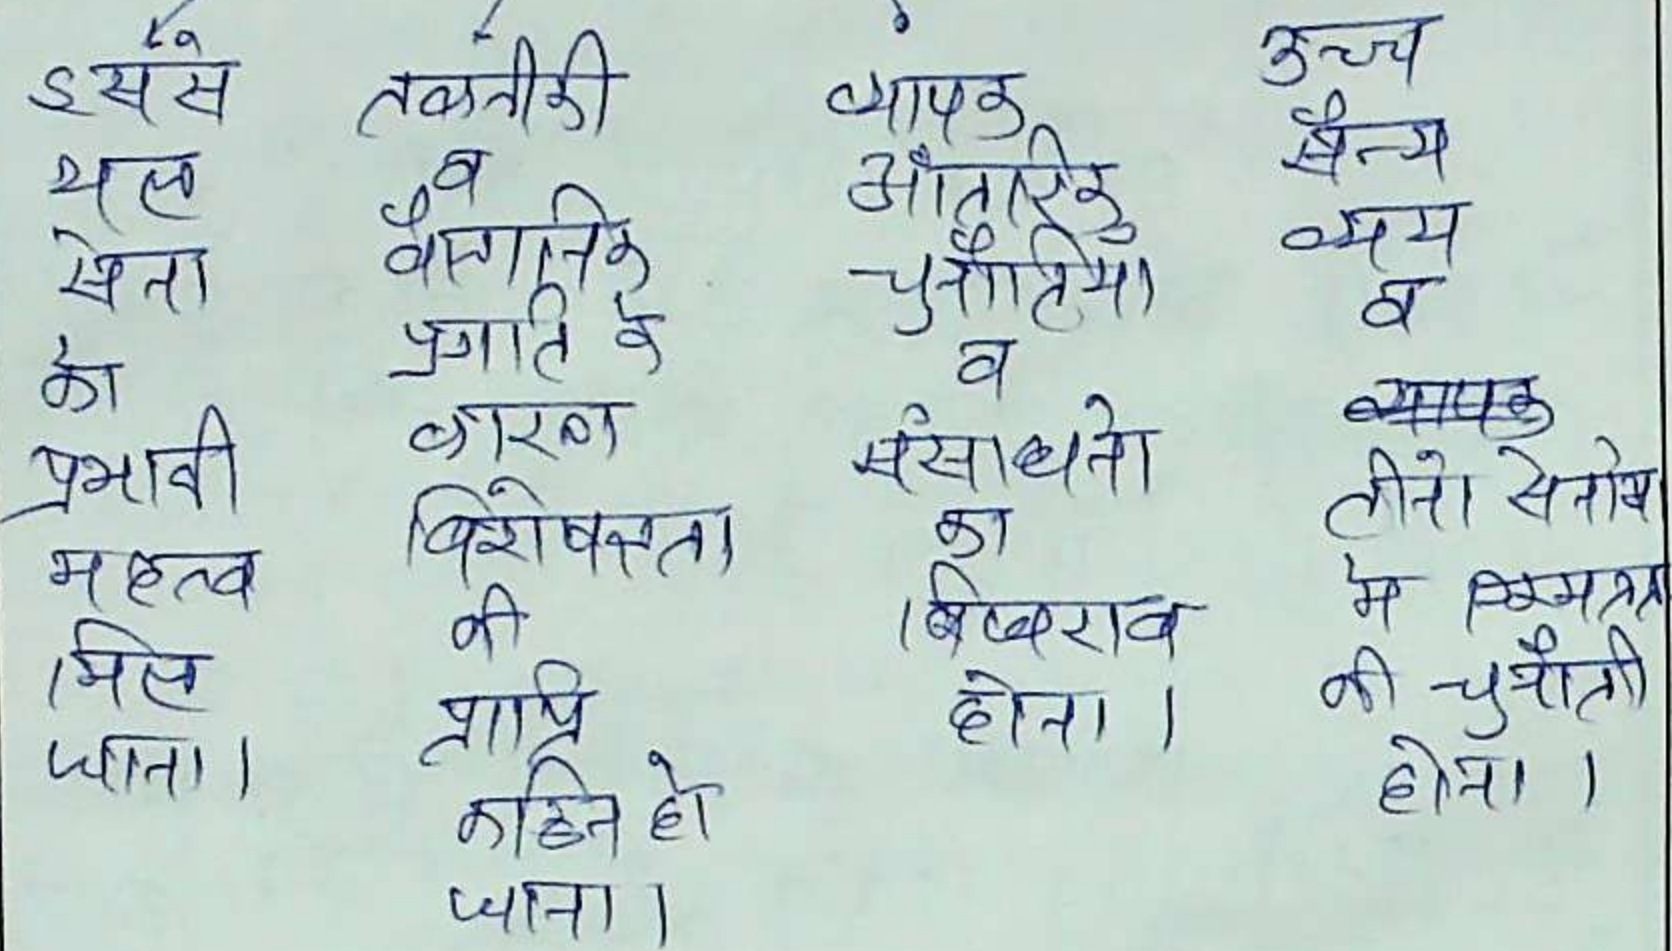 इससे
थल
सेना
को
प्रभावी
महत्व
मिल
जाना।
तकनीकी
व
वैज्ञानिक
प्रगति के
कारण
विशेषज्ञता
की
प्राप्ति
कठिन हो
जाना।
व्यापक
आंतरिक
चुनौतियों
व
संसाधनो
का
बिखराव
होना।
उच्च
सैन्य
व्यय
व
व्यापक
तीनो सेनाओ
मे
की चुनौती
होना।